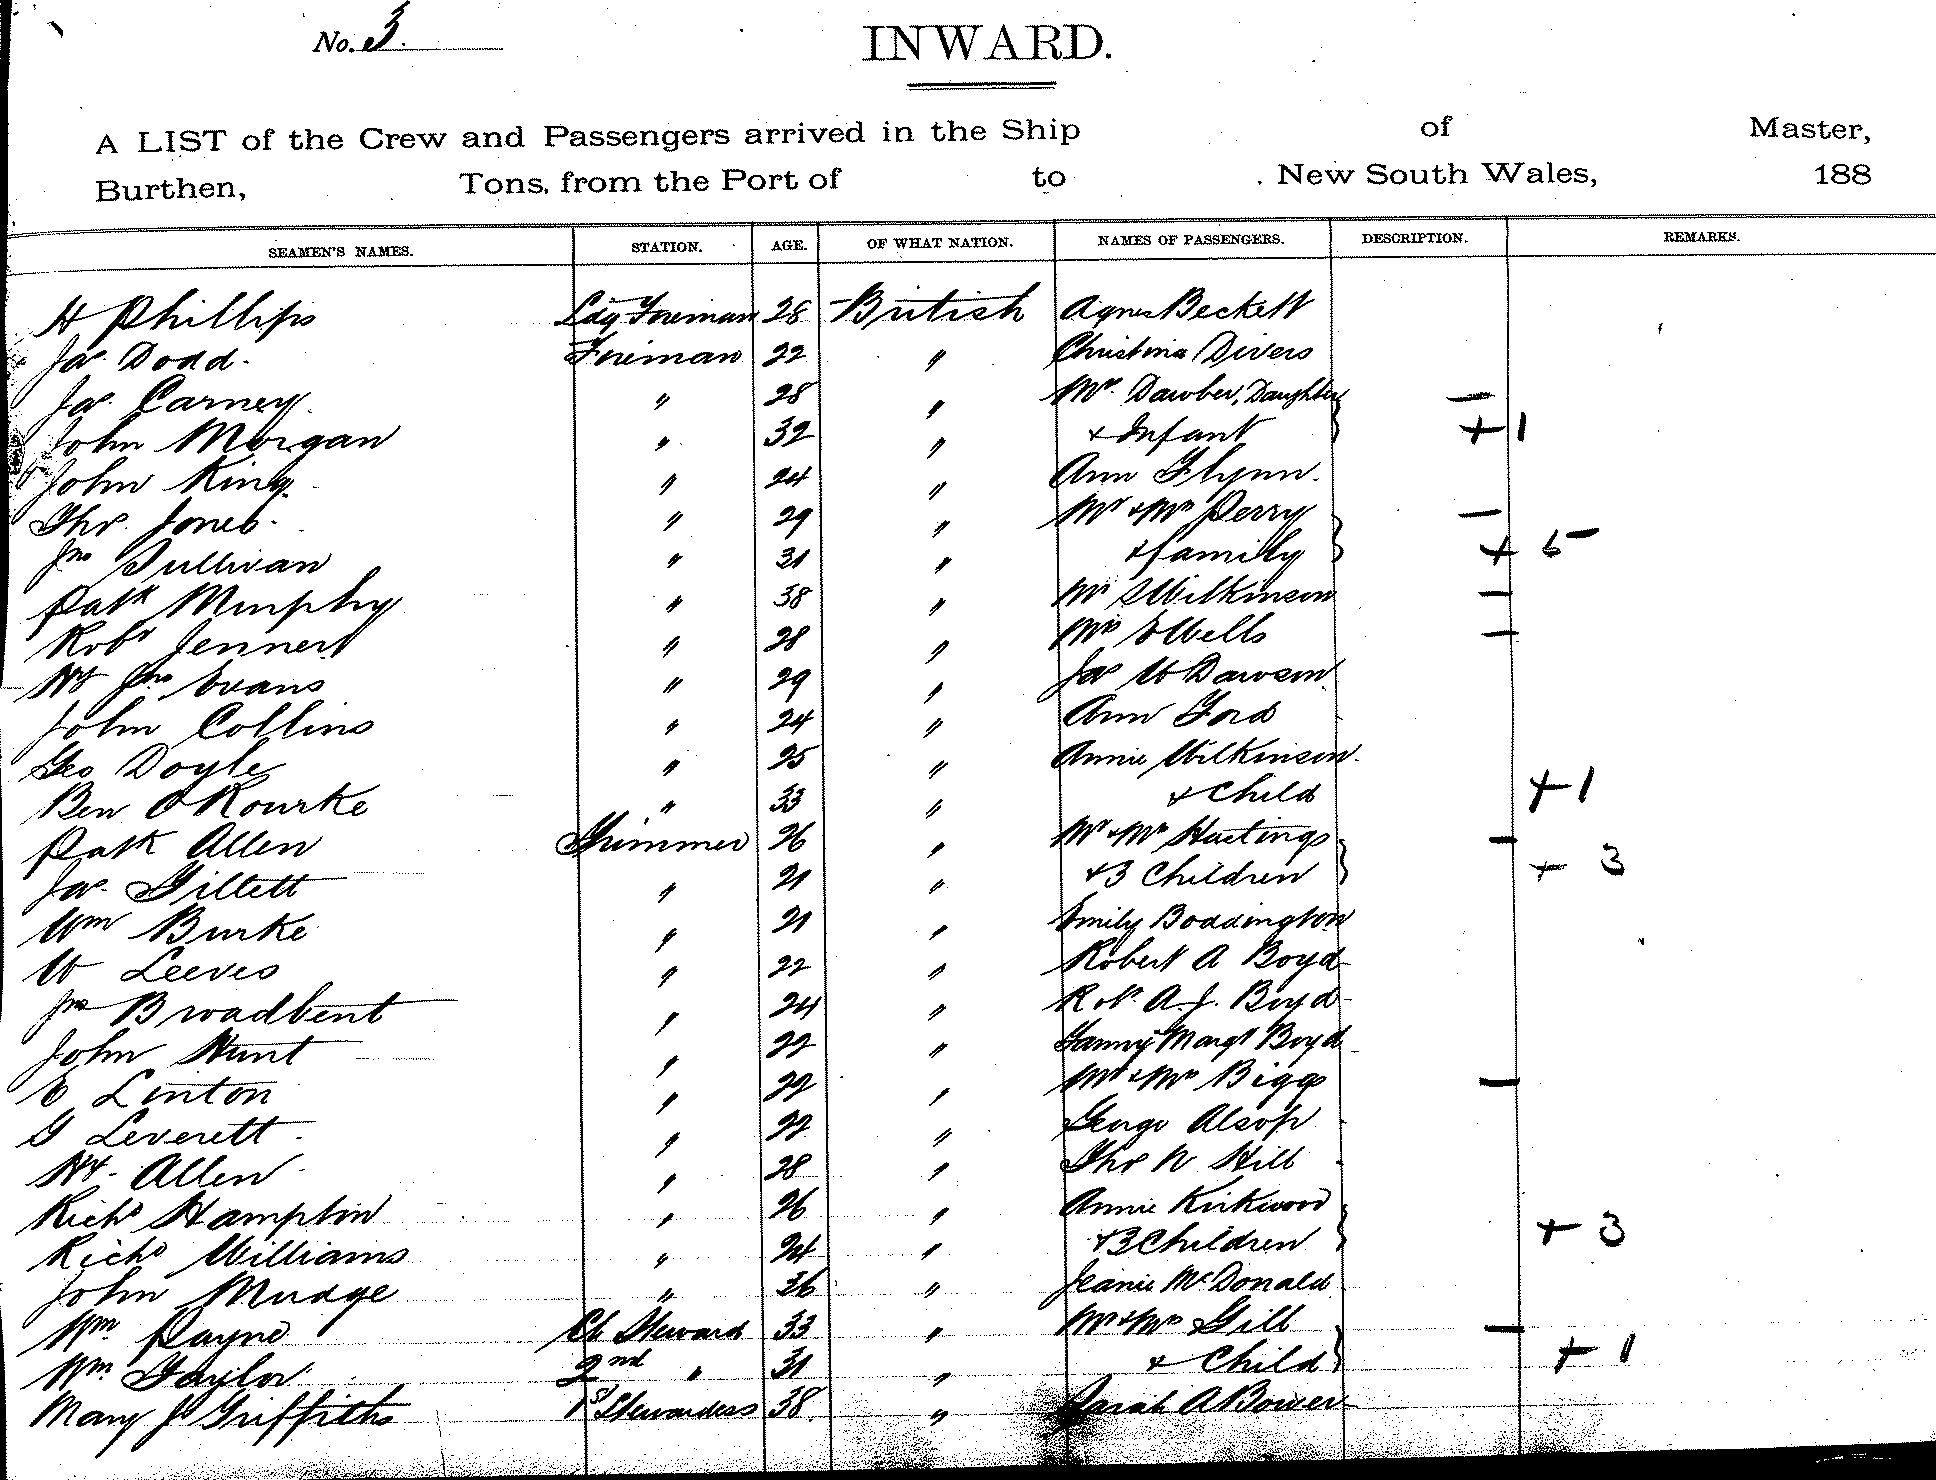 No. 3.
INWARD.
A LIST of the Crew and Passengers arrived in the Ship of Master,
Burthen, Tons, from the Port of to New South Wales, 188
SEAMEN'S NAMES. STATION. AGE. OF WHAT NATION. NAMES OF PASSENGERS. DESCRIPTION. REMARKS.
H Phillips Ldg Fireman 28 British Agnes Beckett
Jas Dodd. Fireman 22 " Christina Divers
Jas. Carney " 28 " Mrs. Dawber, Daughter —
John Morgan " 32 " + Infant + 1
John King " 24 " Ann Flynn.
Thos. Jones. " 29 " Mr + Mrs Perry —
Jno Sullivan " 31 " + family + 5
Patk Murphy " 38 " Mr S Wilkinson —
Robt Jennert " 28 " Mrs E Wells —
Hy Jno Evans " 29 " Jas W Dawson
John Collins " 24 " Ann Ford
Geo Doyle " 25 " Annie Wilkinson
Ben O'Rourke " 33 " + Child + 1
Patk Allen Trimmer 26 " Mr + Mrs Hastings —
Jas. Gillett " 21 " + 3 Children + 3
Wm Burke " 21 " Emily Boddington
W Leeves " 22 " Robert A Boyd
Jno Broadbent " 24 " Robt. A. J. Boyd
John Hunt " 22 " Fanny Margt Boyd
E Linton " 22 " Mr + Mrs Biggs —
G Leverett " 22 " George Alsop
Hy. Allen " 28 " Thos N Hill
Richd Hampton " 26 " Annie Kirkwood
Richd Williams " 24 " + 3 Children + 3
John Mudge " 36 " Jeanie McDonald
Wm. Payne Ch Steward 33 " Mr + Mrs Gill —
Wm. Taylor 2nd " 31 " + Child + 1
Mary J Griffiths Stewardess 38 " Sarah A Bower